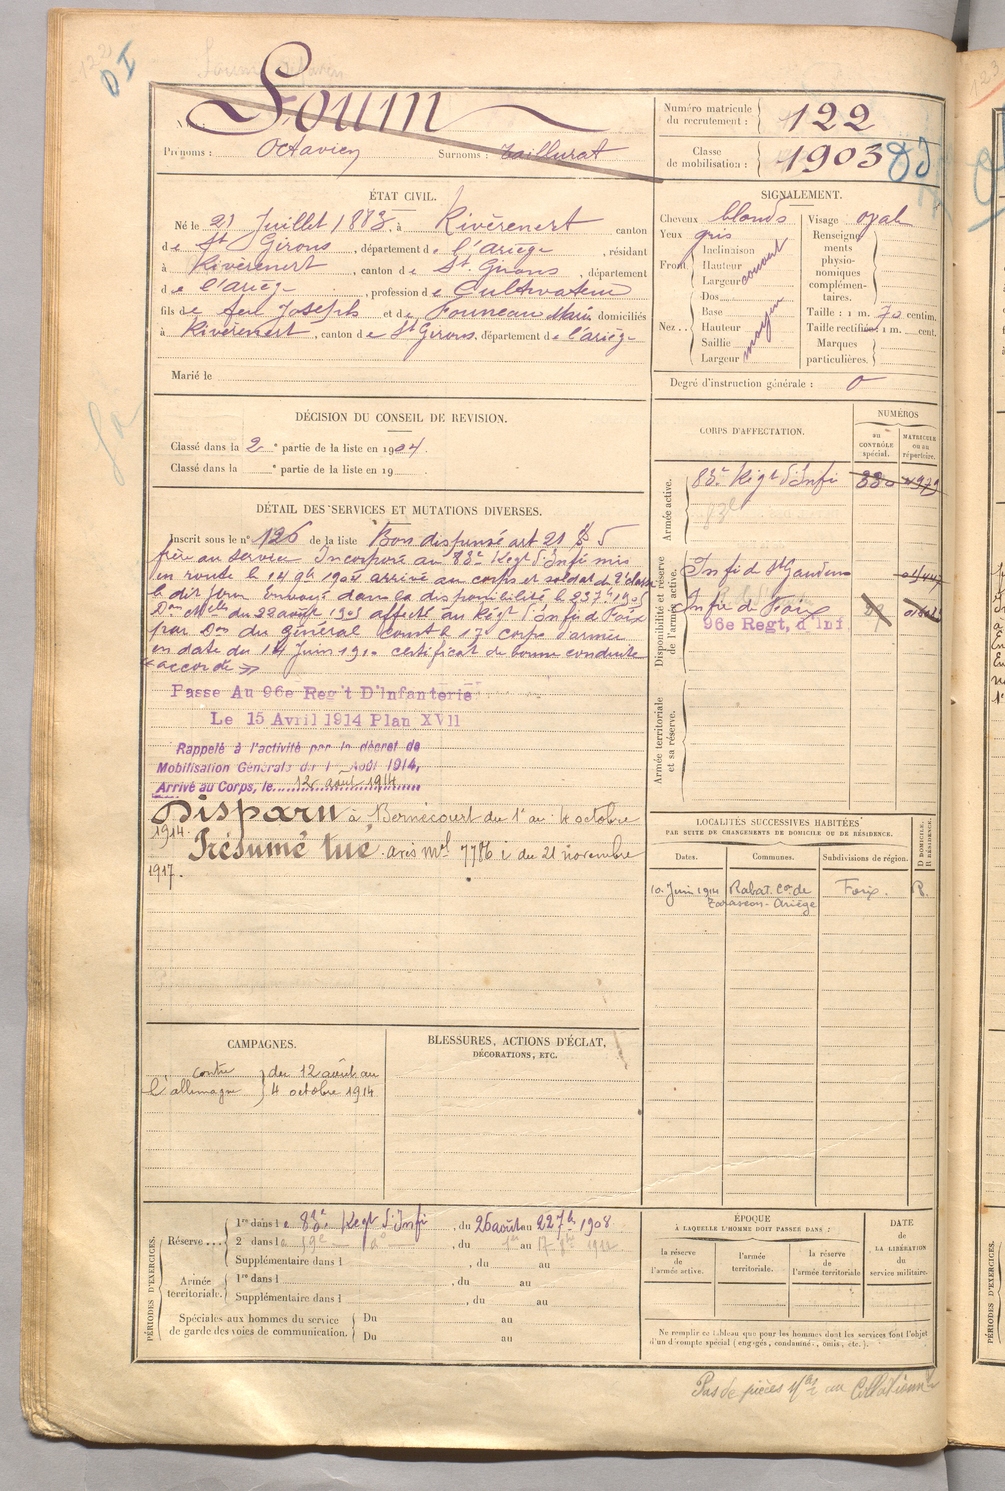 122
DI
Soum
Numéro matricule
du recrutement : 122
Prénoms : Octavien Surnoms : Taillurat
Classe
de mobilisation : 1903
ÉTAT CIVIL.
Né le 21 Juillet 1883 à Rivèrenert canton
de St Girons, département de l'Ariège, résidant
à Rivèrenert, canton de St Girons, département
de l'ariège, profession de Cultivateur
fils de feu Joseph et de Founeau Marie domiciliés
à Rivèrenert, canton de St Girons, département de l'ariège
Marié le
SIGNALEMENT.
Cheveux blonds
Yeux gris
Front Inclinaison
Hauteur
Largeur couvert
Nez Dos
Base
Hauteur
Saillie
Largeur moyen
Visage oval
Renseigne
ments
physio-
nomiques
complémen-
taires.
Taille : 1 m. 70 centim.
Taille rectifiée: 1 m. cent.
Marques
particulières.
Degré d'instruction générale : 0
DÉCISION DU CONSEIL DE REVISION.
Classé dans la 2e partie de la liste en 1904.
Classé dans la e partie de la liste en 19
DÉTAIL DES SERVICES ET MUTATIONS DIVERSES.
Inscrit sous le n° 126 de la liste Bon dispensé art 21 § 5
frère au service Incorporé au 83e Regt d'Infie mis
en route le 14 9bre 1904 arrivé au corps et soldat de 2e classe
le dit jour Envoyé dans la disponibilité le 23 7bre 1905
Don Mlle du 22 août 1905 affecté au Régt d'Infie de Foix
par Don du général Comt le 17e corps d'armée
en date du 14 Juin 1910 certificat de bonne conduite
« accordé »
Passe Au 96e Reg't D'Infanterie
Le 15 Avril 1914 Plan XVII
Rappelé à l'activité par le décret de
Mobilisation Générale du 1 Août 1914,
Arrivé au Corps, le 12 août 1914
Disparu à Bernécourt du 1er au 4 octobre
1914.
Présumé tué avis ml 7786 i du 21 novembre
1917.
CORPS D'AFFECTATION.
NUMÉROS
au
CONTRÔLE
spécial.
MATRICULE
ou au
répertoire.
Armée active.
83e Régt d'Infie
Disponibilité et réserve
de l'armée active.
Infie de St Gaudens
Infie de Foix
96e Regt, d'Inf.
Armée territoriale
et sa réserve.
LOCALITÉS SUCCESSIVES HABITÉES
PAR SUITE DE CHANGEMENTS DE DOMICILE OU DE RÉSIDENCE.
Dates. Communes. Subdivisions de région. D DOMICILE, R RÉSIDENCE.
10 Juin 1914 Rabat Con de Foix. R.
Tarascon - Ariège
CAMPAGNES.
contre du 12 août au
l'allemagne 4 octobre 1914
BLESSURES, ACTIONS D'ÉCLAT,
DÉCORATIONS, ETC.
PÉRIODES D'EXERCICES.
Réserve 1re dans le 83e Regt d'Infie, du 26 août au 22 7bre 1908
2e dans le 19e, du 1er au 17 1912
Supplémentaire dans l , du au
Armée
territoriale.
1re dans l , du au
Supplémentaire dans l , du au
Spéciales aux hommes du service
de garde des voies de communication.
Du au
Du au
ÉPOQUE
À LAQUELLE L'HOMME DOIT PASSER DANS :
la réserve
de
l'armée active.
l'armée
territoriale.
la réserve
de
l'armée territoriale
DATE
de
LA LIBÉRATION
du
service militaire.
Ne remplir ce tableau que pour les hommes dont les services font l'objet
d'un décompte spécial (engagés, condamnés, omis, etc.).
Pas de pièces au Collationnt